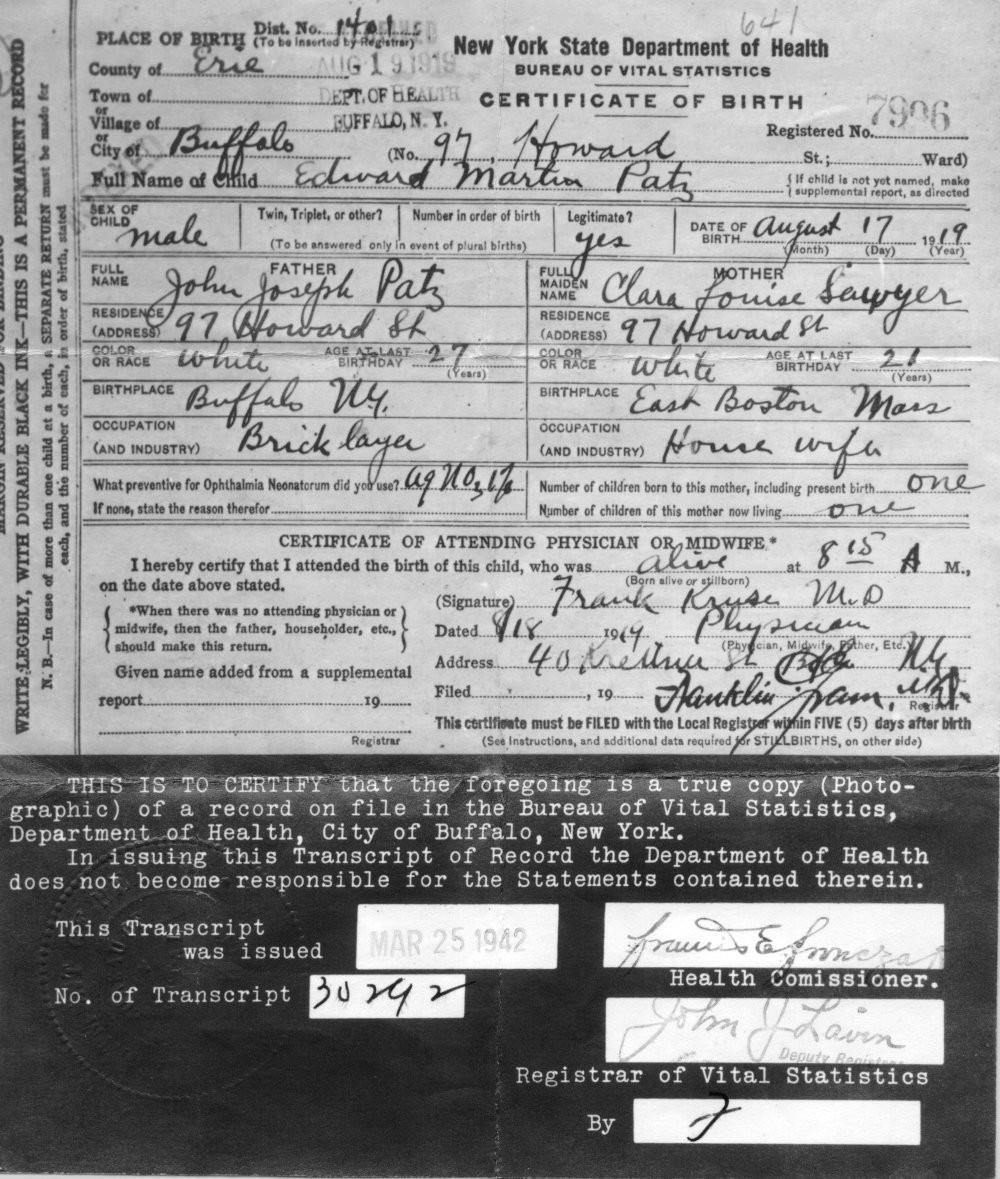 641
PLACE OF BIRTH Dist. No. 1401
(To be Inserted by Registrar)
New York State Department of Health
BUREAU OF VITAL STATISTICS
CERTIFICATE OF BIRTH
County of Erie
AUG 19 1919
Town of
DEPT. OF HEALTH
or
Village of
BUFFALO, N. Y.
Registered No. 7906
or
City of Buffalo (No. 97, Howard St.; Ward)
Full Name of Child Edward Martin Patz
{ If child is not yet named, make
supplemental report, as directed
SEX OF
CHILD male
Twin, Triplet, or other?
Number in order of birth
(To be answered only in event of plural births)
Legitimate?
yes
DATE OF
BIRTH August 17 1919
(Month) (Day) (Year)
FATHER
FULL
NAME John Joseph Patz
RESIDENCE
(ADDRESS) 97 Howard St
COLOR
OR RACE White
AGE AT LAST
BIRTHDAY 27
(Years)
BIRTHPLACE Buffalo N.Y.
OCCUPATION
(AND INDUSTRY) Brick layer
MOTHER
FULL
MAIDEN
NAME Clara Louise Sawyer
RESIDENCE
(ADDRESS) 97 Howard St
COLOR
OR RACE White
AGE AT LAST
BIRTHDAY 21
(Years)
BIRTHPLACE East Boston Mass
OCCUPATION
(AND INDUSTRY) House wife
What preventive for Ophthalmia Neonatorum did you use? Ag NO3 1%
If none, state the reason therefor
Number of children born to this mother, including present birth one
Number of children of this mother now living one
CERTIFICATE OF ATTENDING PHYSICIAN OR MIDWIFE*
I hereby certify that I attended the birth of this child, who was alive at 8 15 A M.,
(Born alive or stillborn)
on the date above stated.
{ *When there was no attending physician or
midwife, then the father, householder, etc.,
should make this return. }
(Signature) Frank Kruse M.D
Dated 8/18 1919 Physician
(Physician, Midwife, Father, Etc.)
Given name added from a supplemental
report 19
Registrar
Address 40 St N.Y.
Filed , 19 Franklin Gram, M.D.
Registrar
This certificate must be FILED with the Local Registrar within FIVE (5) days after birth
(See Instructions, and additional data required for STILLBIRTHS, on other side)
WRITE LEGIBLY, WITH DURABLE BLACK INK—THIS IS A PERMANENT RECORD
N. B.—In case of more than one child at a birth, a SEPARATE RETURN must be made for
each, and the number of each, in order of birth, stated
THIS IS TO CERTIFY that the foregoing is a true copy (Photo-
graphic) of a record on file in the Bureau of Vital Statistics,
Department of Health, City of Buffalo, New York.
In issuing this Transcript of Record the Department of Health
does not become responsible for the Statements contained therein.
This Transcript
was issued MAR 25 1942
No. of Transcript 30292
Health Comissioner.
John J Lavin
Deputy Registrar
Registrar of Vital Statistics
By